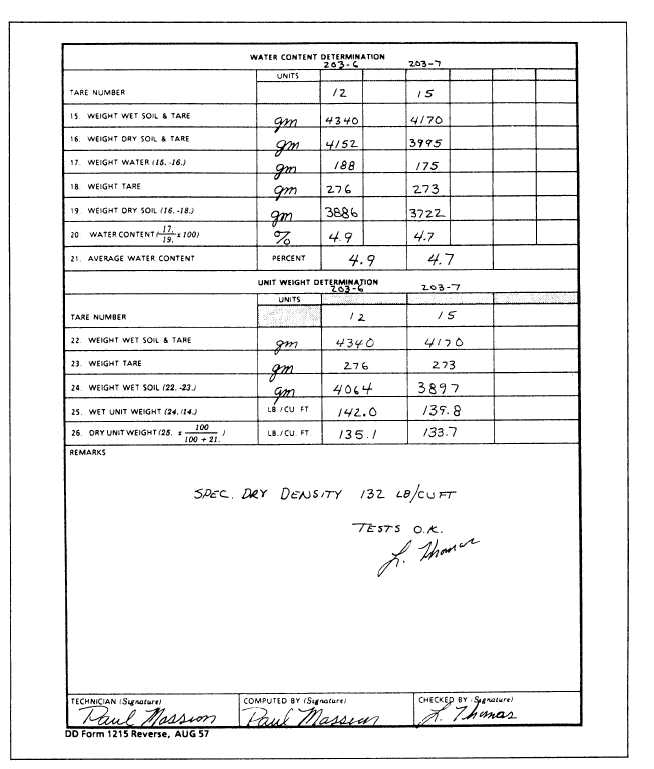 WATER CONTENT DETERMINATION
203-6 203-7
UNITS
TARE NUMBER 12 15
15. WEIGHT WET SOIL & TARE gm 4340 4170
16. WEIGHT DRY SOIL & TARE gm 4152 3995
17. WEIGHT WATER (15.-16.) gm 188 175
18. WEIGHT TARE gm 276 273
19. WEIGHT DRY SOIL (16.-18.) gm 3886 3722
20. WATER CONTENT (17./19. x 100) % 4.9 4.7
21. AVERAGE WATER CONTENT PERCENT 4.9 4.7
UNIT WEIGHT DETERMINATION
203-6 203-7
UNITS
TARE NUMBER 12 15
22. WEIGHT WET SOIL & TARE gm 4340 4170
23. WEIGHT TARE gm 276 273
24. WEIGHT WET SOIL (22.-23.) gm 4064 3897
25. WET UNIT WEIGHT (24./14.) LB./CU. FT 142.0 139.8
26. DRY UNIT WEIGHT (25. x 100/100 + 21.) LB./CU. FT. 135.1 133.7
REMARKS
SPEC. DRY DENSITY 132 LB/CUFT
TESTS O.K.
L. Thomas
TECHNICIAN (Signature) COMPUTED BY (Signature) CHECKED BY (Signature)
Paul Massion Paul Massion L. Thomas
DD Form 1215 Reverse, AUG 57